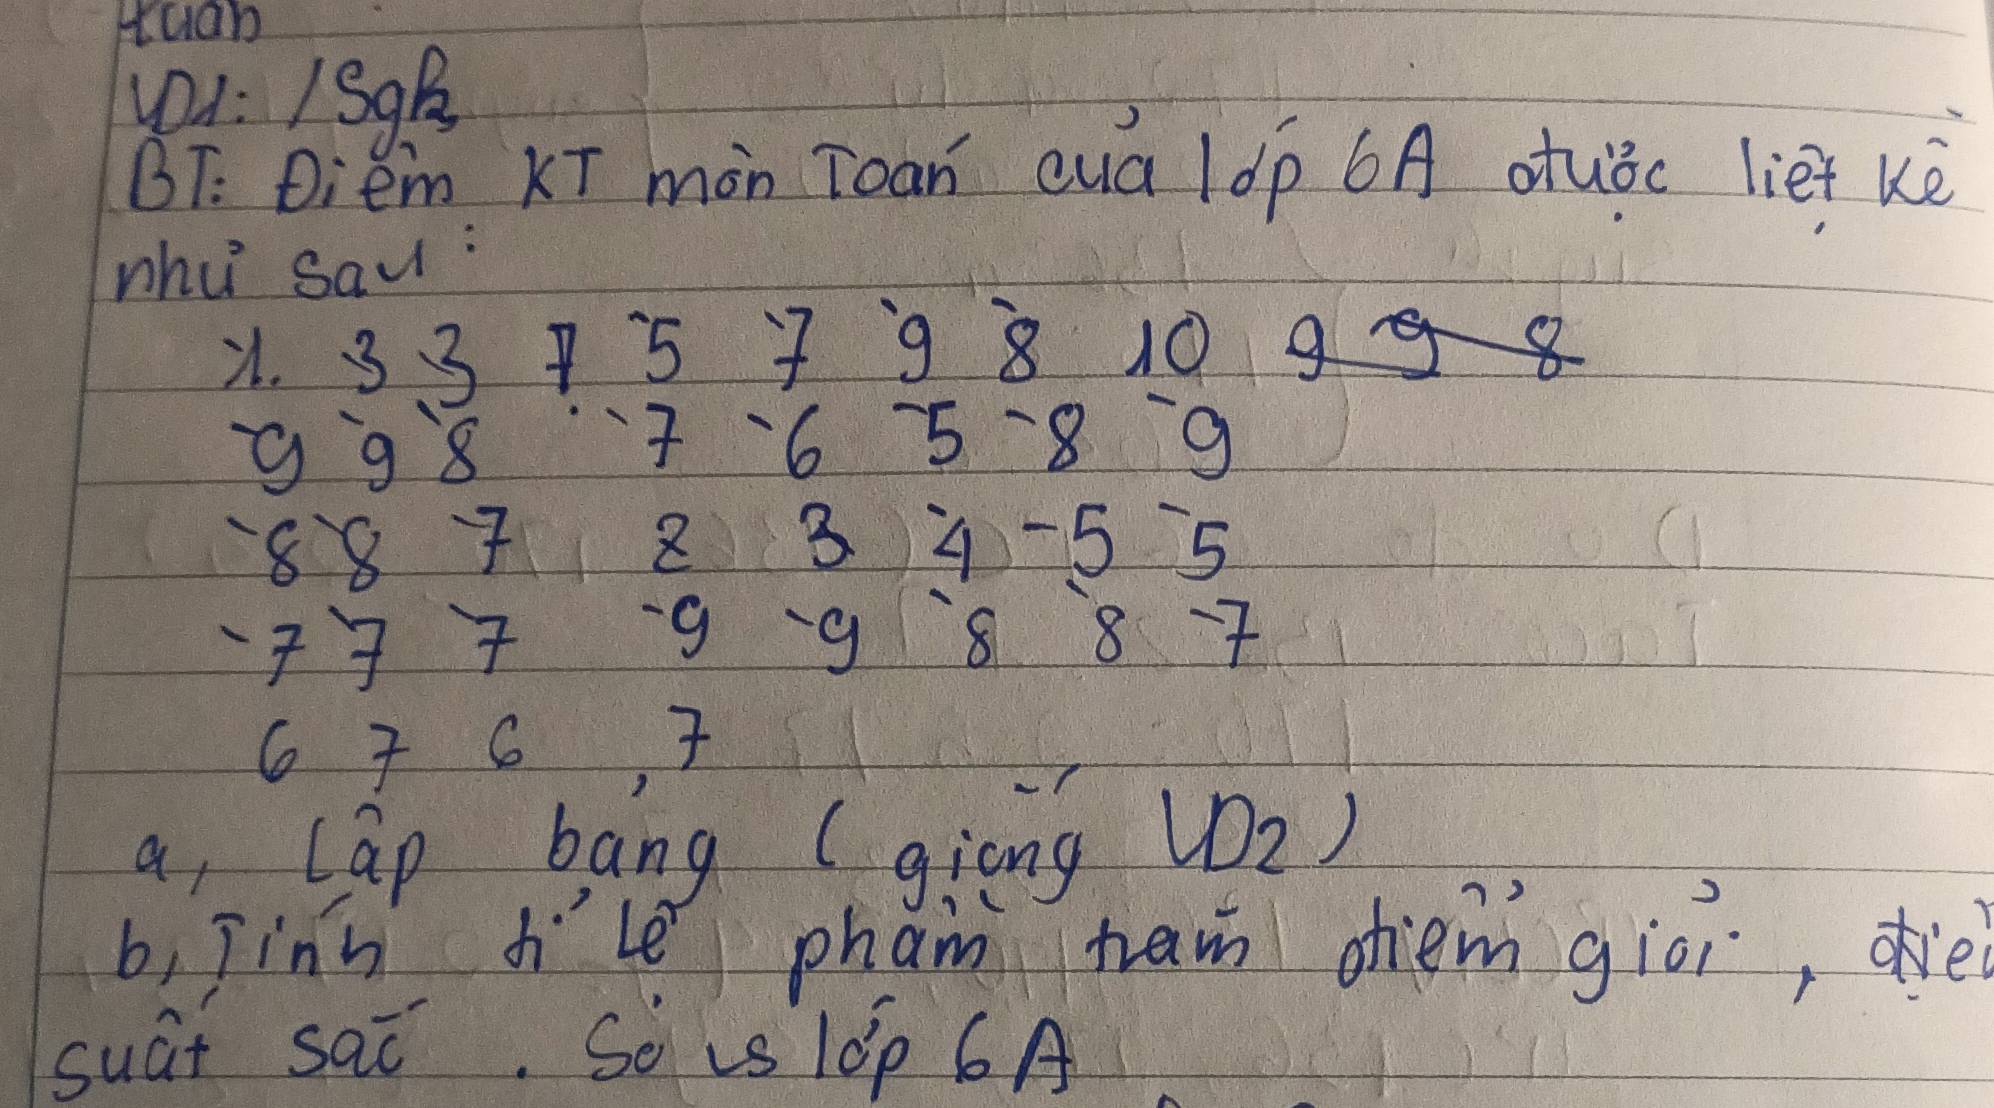 tuần
VD1: /Sgk
BT: Điểm KT môn Toán của lớp 6A được liệt kê
như sau:
1. 3 3 7 5 7 9 8 10 9 9 8
9 9 8 7 6 5 8 9
8 8 7 2 3 4 5 5
7 7 7 9 9 8 8 7
6 7 6 7
a, Lập bảng (giống VD2)
b, Tính tỉ lệ phầm trăm điểm giỏi, điể
suất sắc. So vs lớp 6A